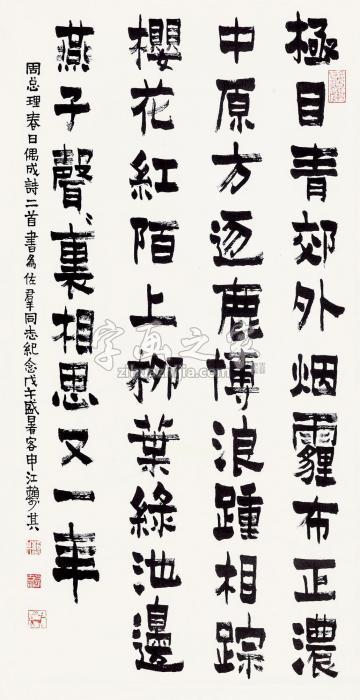 極目青郊外烟霾布正濃
中原方逐鹿博浪踵相踪
櫻花紅陌上柳葉綠池邊
燕子聲〻裏相思又一年
周总理春日偶成詩二首書為佐羣同志紀念戊午盛暑客申江賴少其
字画之家